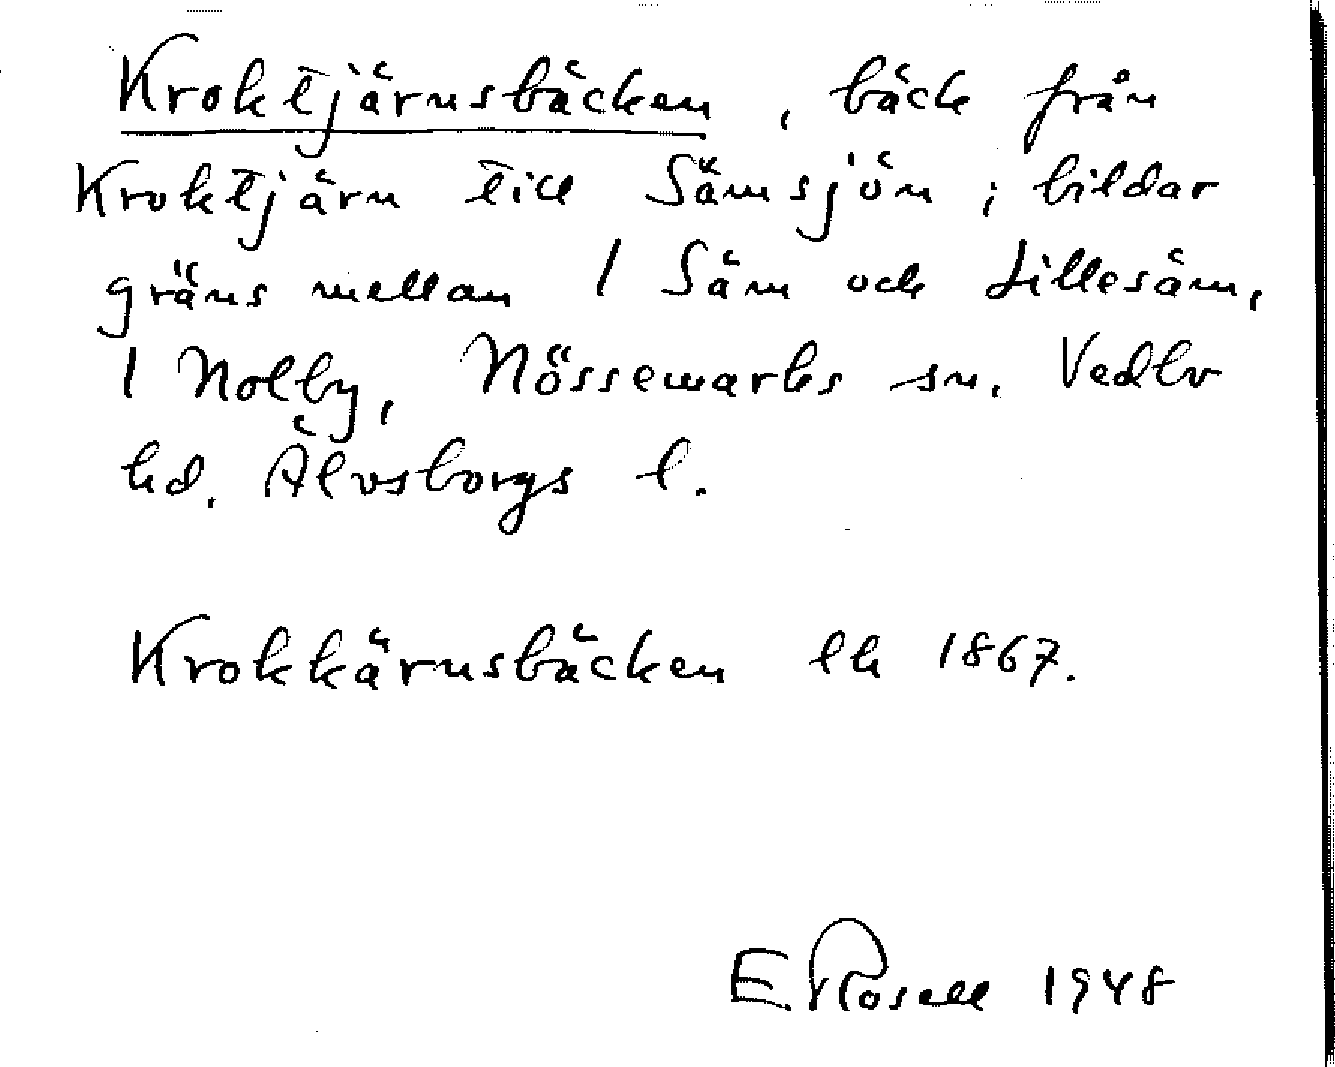 Kroktjärnsbäcken, bäck från
Kroktjärn till Sämsjön; bildar
gräns mellan 1 Säm och Lillesäm,
1 Nolby, Nössemarks sn. Vedbo
hd. Älvsborgs l.
Krokkärnsbäcken ek 1867.
E. Rosell 1948